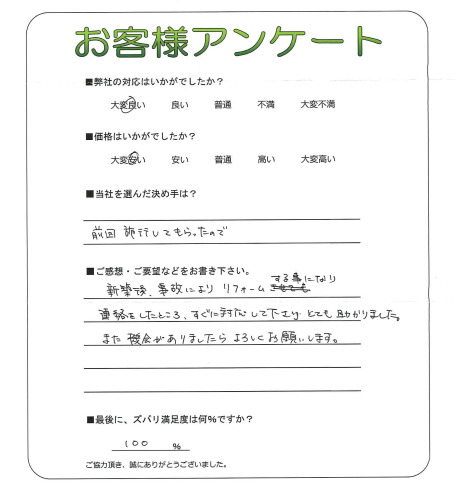 お客様アンケート
■弊社の対応はいかがでしたか?
大変良い 良い 普通 不満 大変不満
■価格はいかがでしたか?
大変安い 安い 普通 高い 大変高い
■当社を選んだ決め手は?
前回 施行してもらったので
■ご感想・ご要望などをお書き下さい。
する事になり
新築後、事故により リフォーム させても
連絡をしたところ、すぐに対応して下さり とても助かりました。
また 機会がありましたら よろしくお願いします。
■最後に、ズバリ満足度は何%ですか?
100 %
ご協力頂き、誠にありがとうございました。